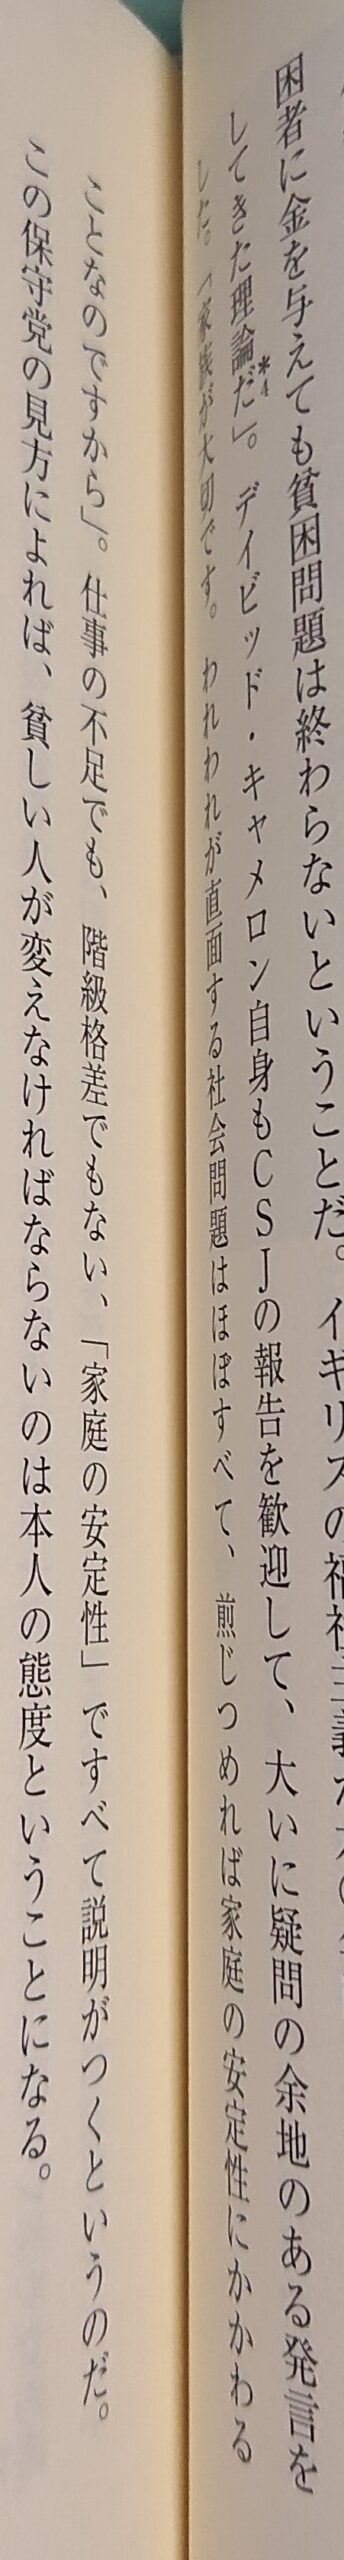 困者に金を与えても貧困問題は終わらないということだ。イギリスの福祉主義
してきた理論だ」*4。デイビッド・キャメロン自身もCSJの報告を歓迎して、大いに疑問の余地のある発言を
した。「家族が大切です。われわれが直面する社会問題はほぼすべて、煎じつめれば家庭の安定性にかかわる
ことなのですから」。仕事の不足でも、階級格差でもない、「家庭の安定性」ですべて説明がつくというのだ。
この保守党の見方によれば、貧しい人が変えなければならないのは本人の態度ということになる。